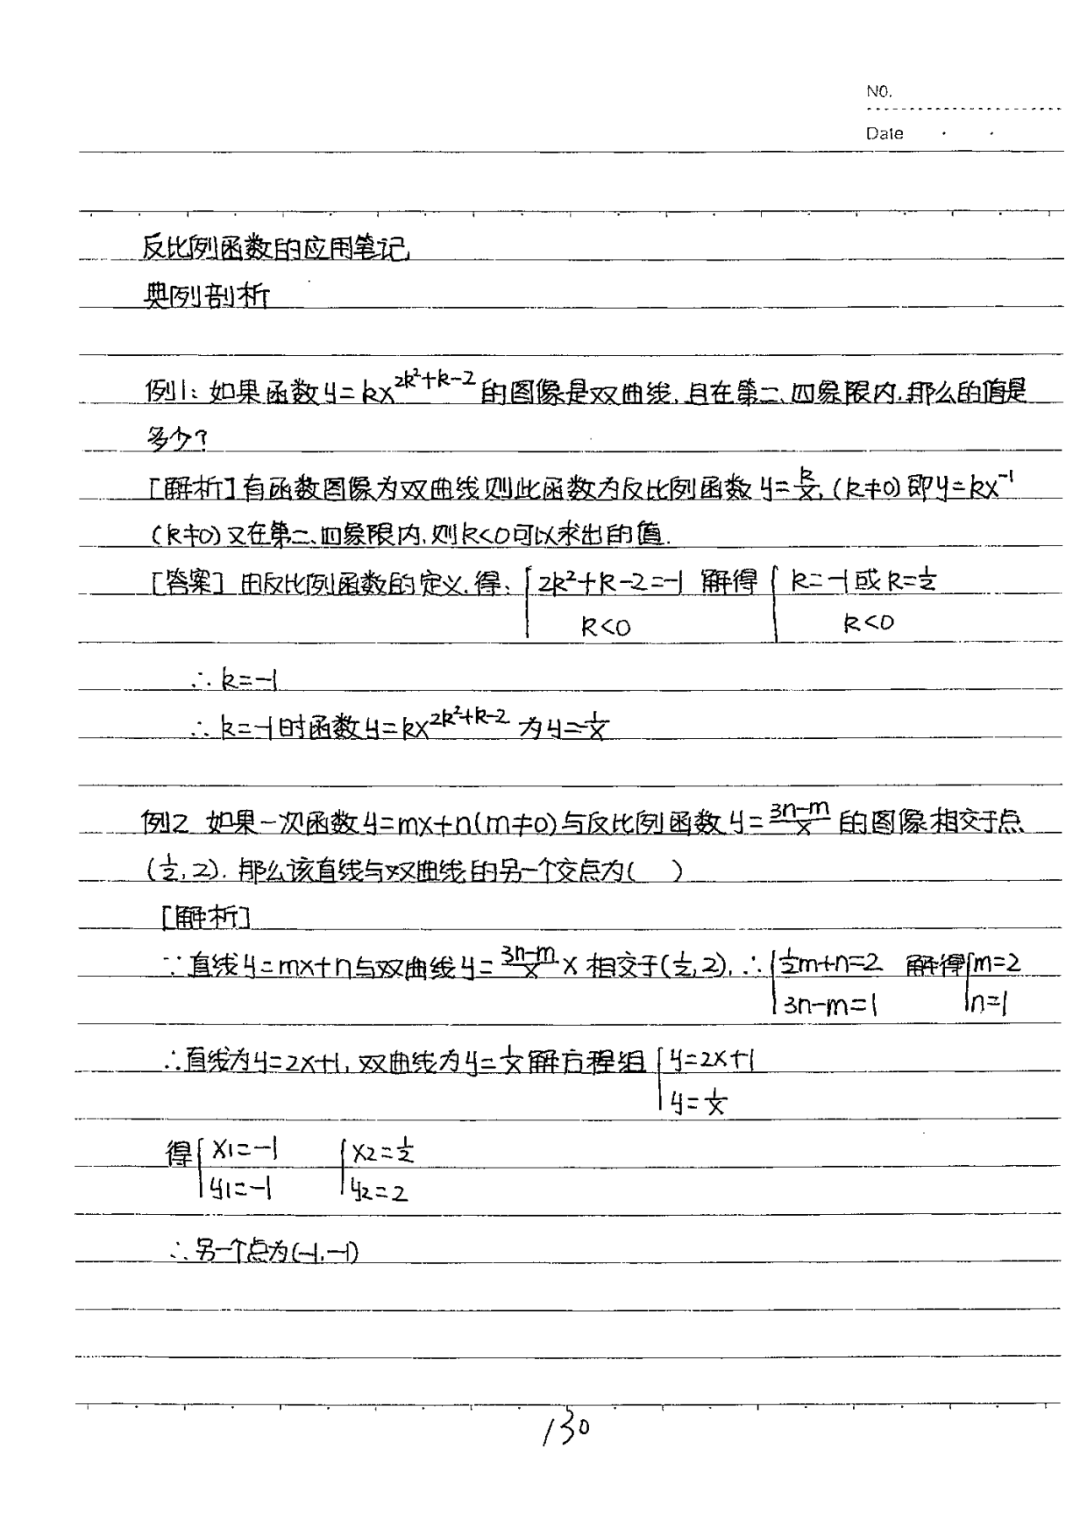 NO.
Date
反比例函数的应用笔记
典例剖析
例1: 如果函数y=kx^{2k²+k-2}的图像是双曲线,且在第二、四象限内,那么的值是
多少?
[解析]有函数图像为双曲线则此函数为反比例函数y=k/x,(k≠0)即y=kx^{-1}
(k≠0)又在第二、四象限内,则k<0可以求出的值.
[答案] 由反比例函数的定义,得: { 2k²+k-2=-1 解得 { k=-1或k=1/2
k<0 k<0
∴k=-1
∴k=-1时函数y=kx^{2k²+k-2} 为y=1/x
例2 如果一次函数y=mx+n(m≠0)与反比例函数y=(3n-m)/x 的图像相交于点
(1/2,2).那么该直线与双曲线的另一个交点为( )
[解析]
∵直线y=mx+n与双曲线y=(3n-m)/x x相交于(1/2,2),∴{ 1/2m+n=2 解得{ m=2
3n-m=1 n=1
∴直线为y=2x+1,双曲线为y=1/x解方程组{ y=2x+1
y=1/x
得{ x1=-1 { x2=1/2
y1=-1 y2=2
∴另一个点为(-1,-1)
130